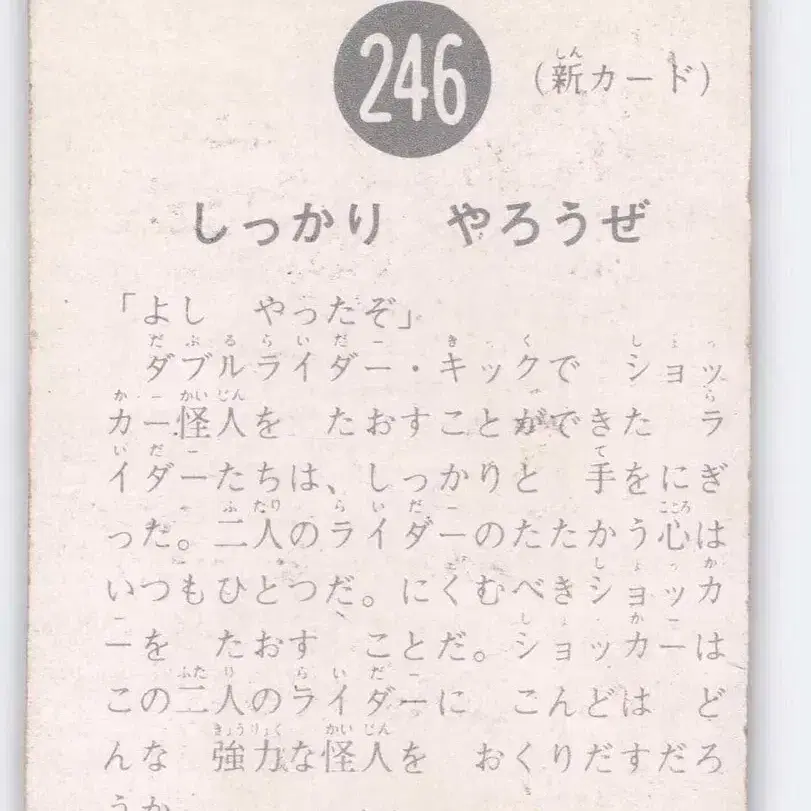 246
(新カード)
しっかり やろうぜ
「よし やったぞ」
ダブルライダー・キックで ショッ
カー怪人を たおすことができた ラ
イダーたちは、しっかりと 手をにぎ
った。二人のライダーのたたかう心は
いつもひとつだ。にくむべきショッカ
ーを たおす ことだ。ショッカーは
この二人のライダーに こんどは ど
んな 強力な怪人を おくりだすだろ
うか